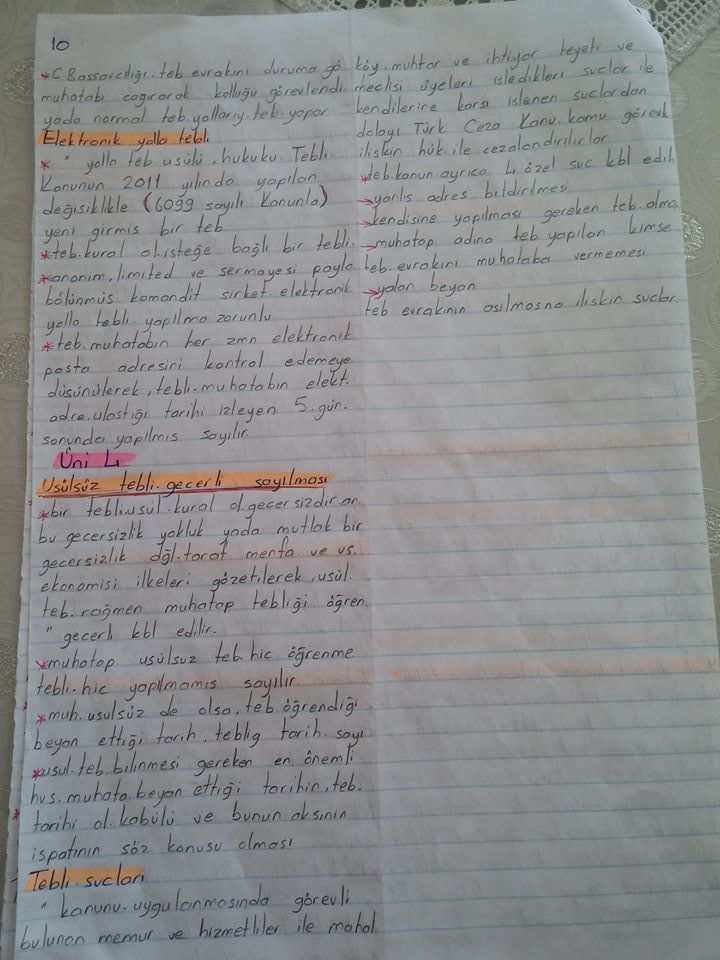 10
*C.Bassavcılığı.teb evrakını duruma gö
muhatabı cagırarak kolluğu görevlendi
yada normal teb.yolları y.teb.yapar
Elektronik yolla tebli
* " yolla teb usülü, hukuku Tebli
Kanunun 2011 yılında yapılan
değisiklikle (6099 sayılı Kanunla)
yeni girmis bir teb
*teb.kural ol.isteğe bağlı bir tebli.
*anonim, limited ve sermayesi paylo
bölünmüs komandit sirket elektronik
yolla tebli yapılma zorunlu
*teb.muhatabın her zmn elektronik
posta adresini kontrol edemeye
düsünülerek, tebli.muhatabın elekt.
adre.ulastığı tarihi izleyen 5.gün.
sonunda yapılmıs sayılır.
Üni 4
Usülsüz tebli.gecerli sayılması
*bir tebli.usül.kural ol.gecersizdir an.
bu gecersizlik yokluk yada mutlak bir
gecersizlik dğl.taraf menfa ve us.
ekonomisi ilkeleri gözetilerek, usül.
teb.rağmen muhatap tebliği öğren.
" gecerli kbl edilir.
*muhatap usülsüz teb.hic öğrenme
tebli.hic yapılmamıs sayılır
*muh.usulsüz de olsa, teb öğrendiği
beyan ettiği tarih, teblig tarih.sayı
*usul.teb.bilinmesi gereken en önemli
hus.muhata.beyan ettiği tarihin, teb.
tarihi ol.kabülü ve bunun aksının
ispatının söz konusu olması
Tebli.sucları
" kanunu.uygulanmasında görevli
bulunan memur ve hizmetliler ile mahal
köy.muhtar ve ihtiyar heyeti ve
meclisi üyeleri isledikleri suclar ile
kendilerine karsı islenen suclardan
dolayı Türk Ceza Kanu.kamu görevl
iliskin hük.ile cezalandırılırlar
*teb.kanun ayrıca 4 özel suc kbl edil
→yanlıs adres bildirilmesi
→kendisine yapılması gereken teb.alma
→muhatap adına teb yapılan kimse
teb.evrakını muhataba vermemesi
→yalan beyan
teb evrakının asılmasna iliskin suclar.